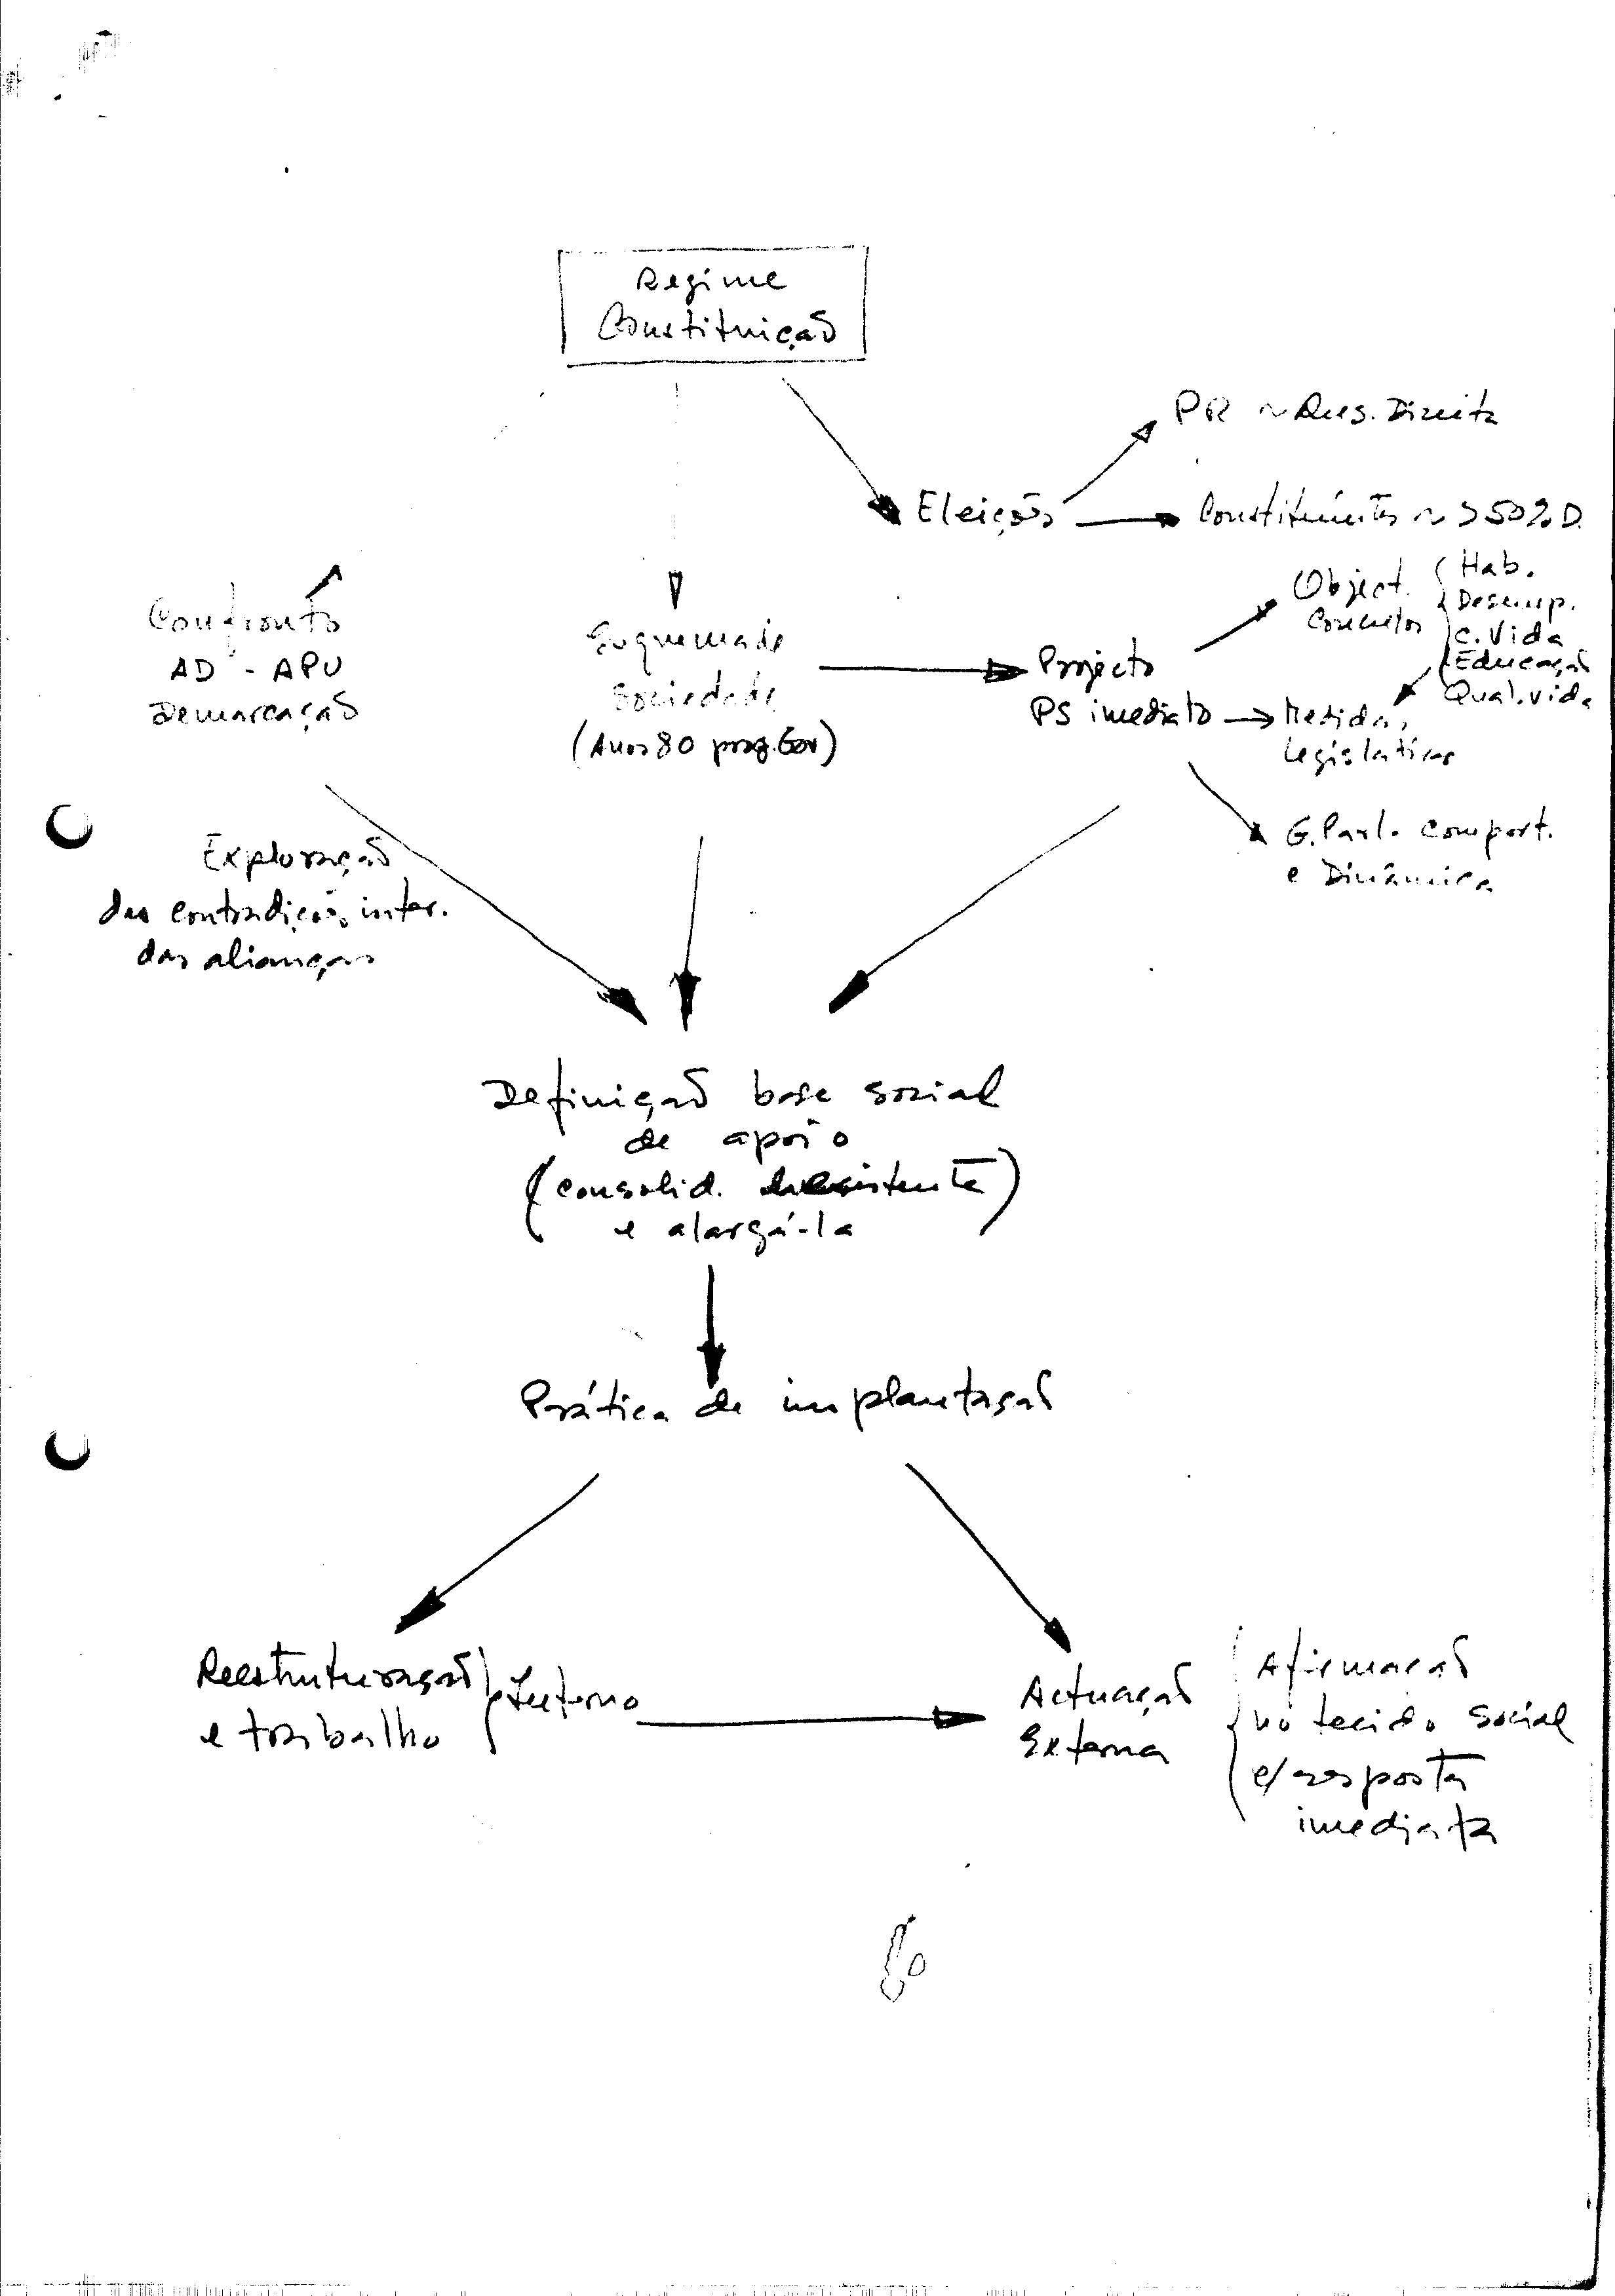 Regime
Constituição
PR ~ Res. Direita
Eleições
Constituintes ~ > 50% D.
Confronto
AD - APU
Demarcação
Esquema de
Sociedade
(Anos 80 prog. Gov)
Projecto
PS imediato
Object.
Concretos
Hab.
Desemp.
C. Vida
Educação
Qual. vida
Medidas
Legislativas
G. Parl. Comport.
e Dinâmica
Exploração
das contradições inter.
das alianças
Definição base social
de apoio
(consolid. existente)
e alargá-la
Prática de implantação
Reestruturação
e trabalho
Interno
Actuação
Externa
Afirmação
no tecido social
c/ resposta
imediata